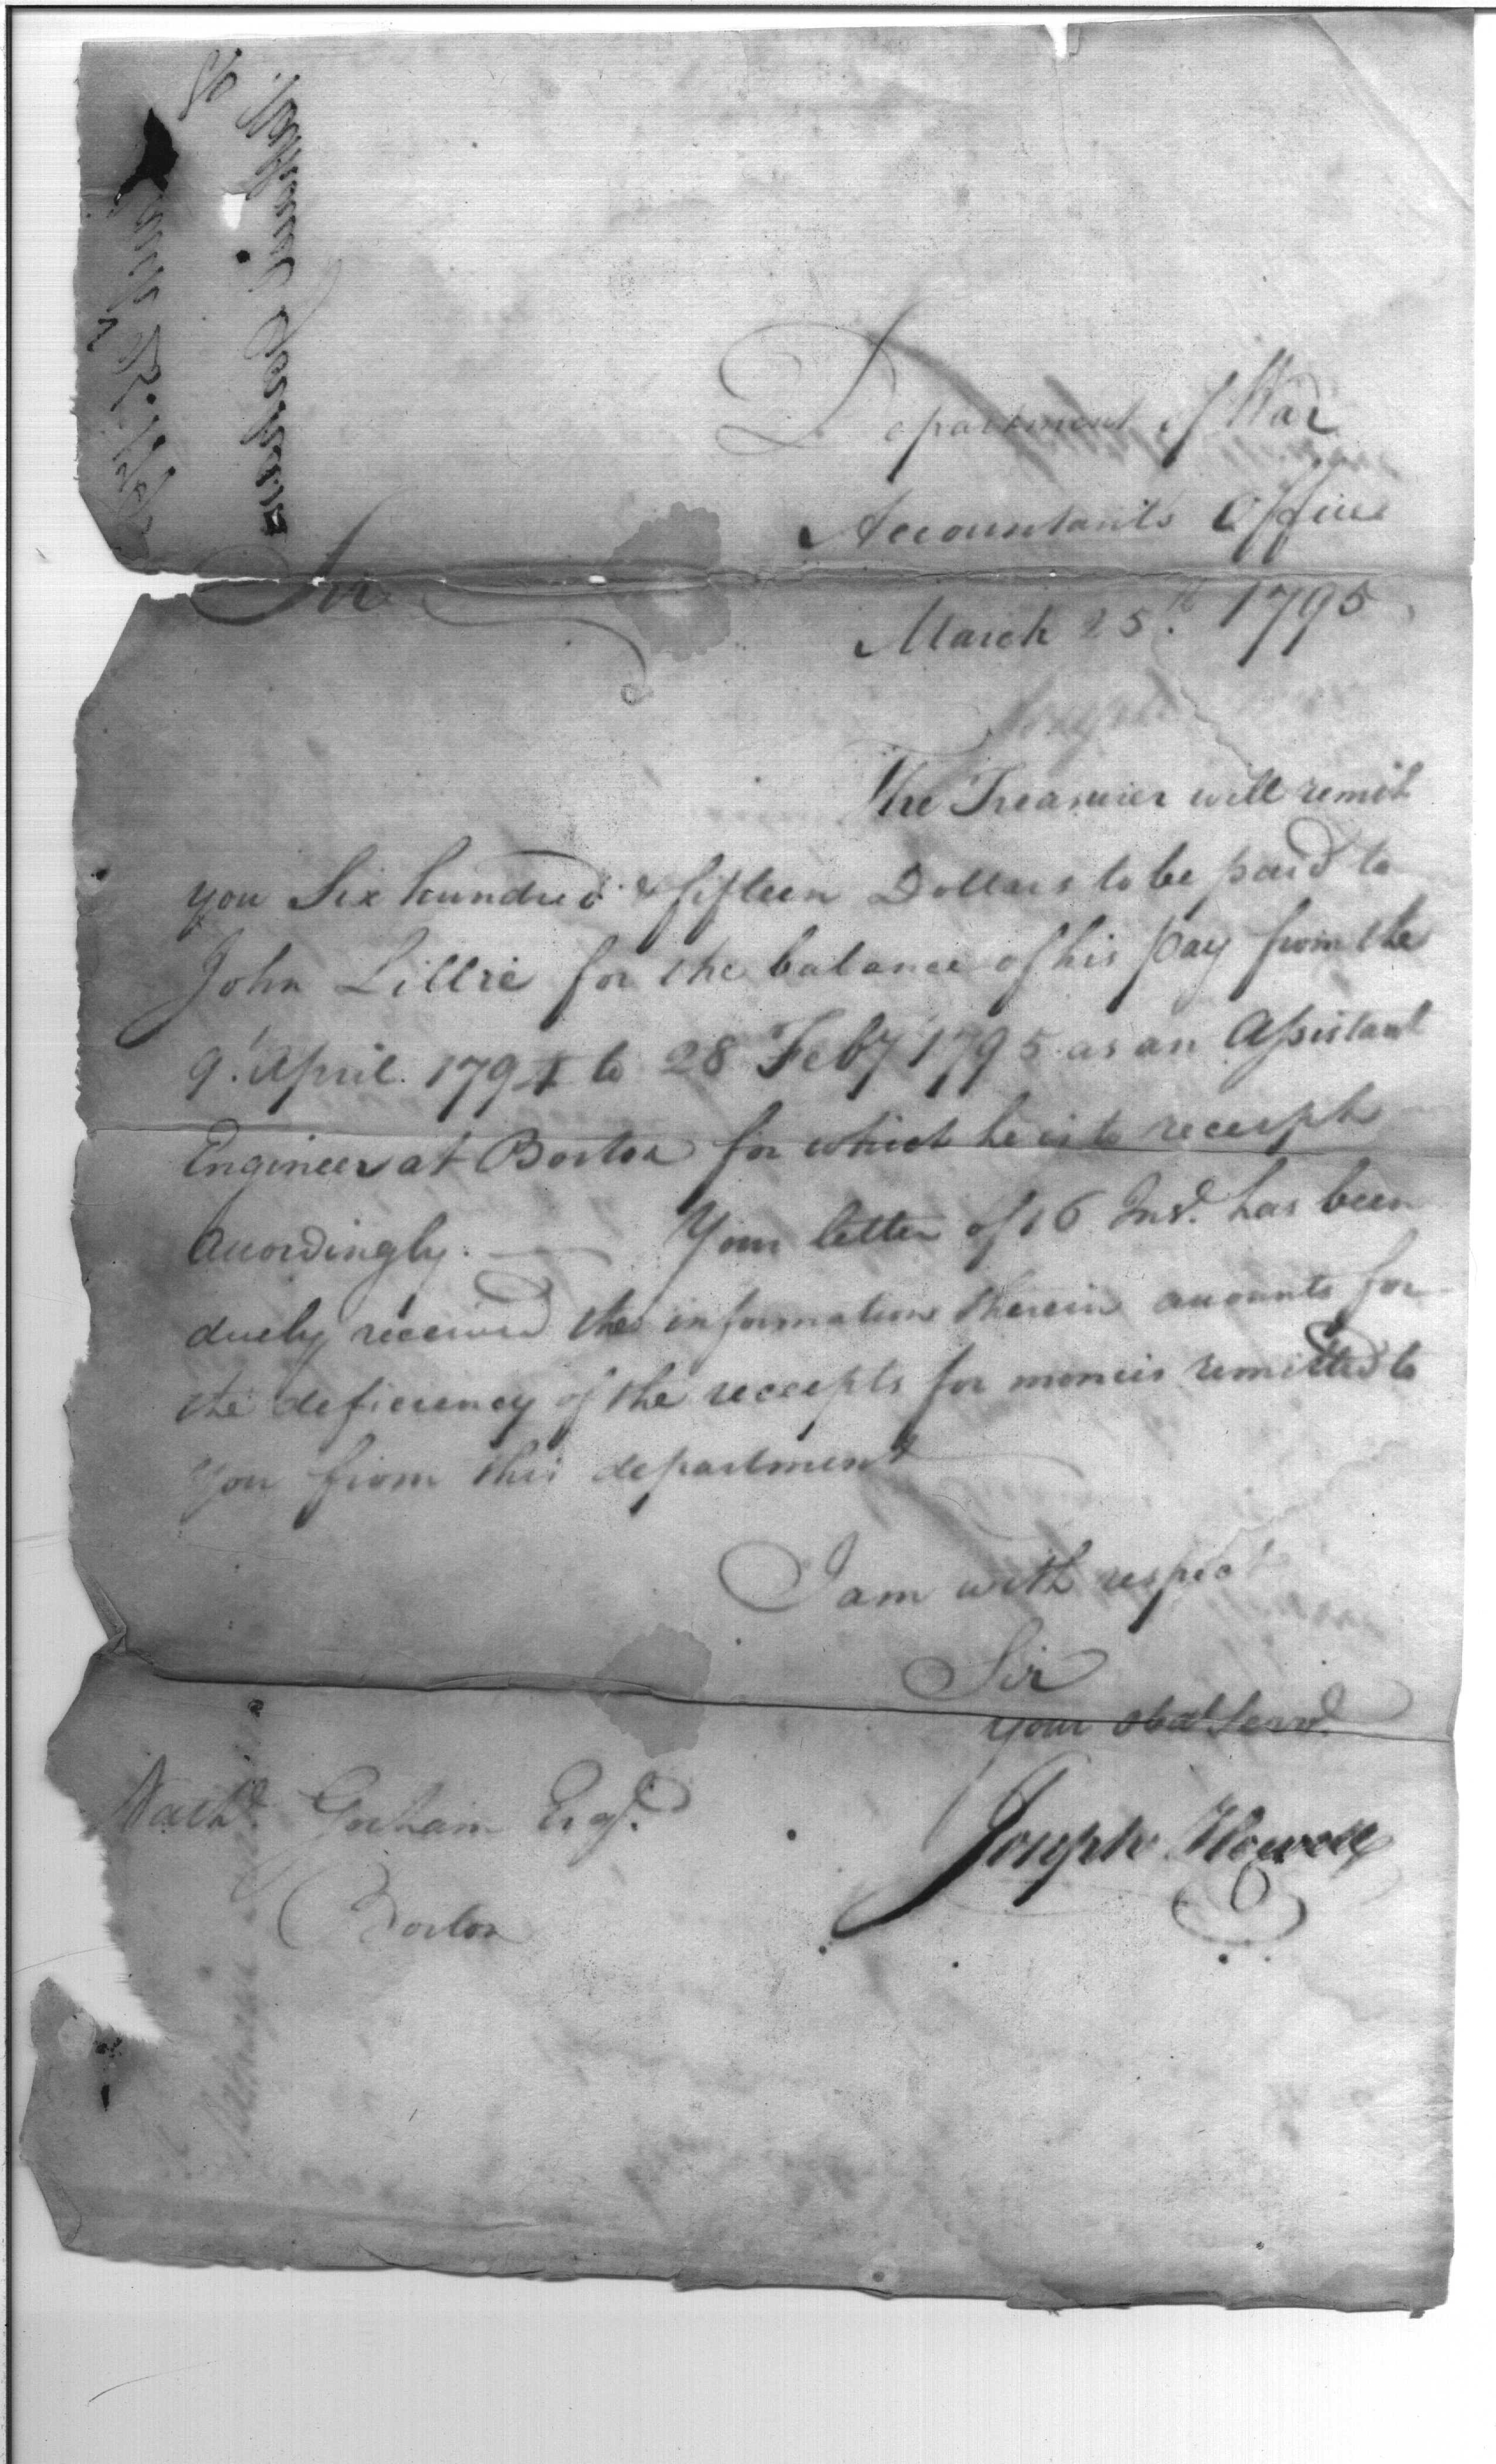 Department of War
Accountants Office
Sir
March 25th. 1795
The Treasurer will remit
you Six hundred & fifteen Dollars to be paid to
John Lillie for the balance of his pay from the
9. April. 1794 to 28 Feby 1795 as an Assistant
Engineer at Boston for which he is to receipt
accordingly. Your letter of 16 Inst. has been
duely received the information therein accounts for
the deficiency of the receipts for monies remitted to
you from this department
I am with respect
Sir
Your obdt Servt.
Joseph Howell
Nathl. Gorham Esqr.
Boston